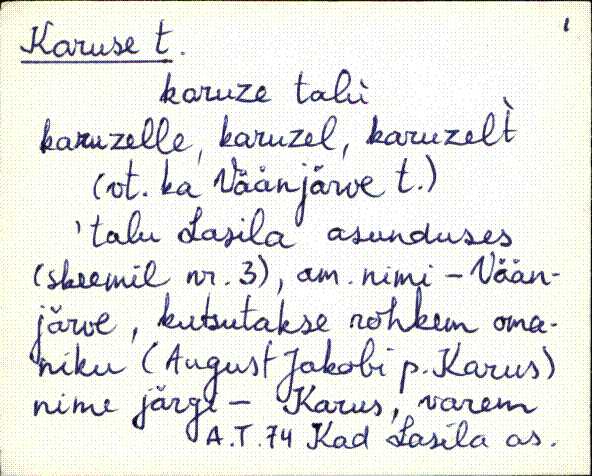 1
Karuse t.
karuze talu
karuzelle, karuzel, karuzelt̀
(vt. ka Väänjärve t.)
'talu Lasila asunduses
(skeemil nr. 3), am. nimi – Vään-
järve, kutsutakse rohkem oma-
niku (August Jakobi p. Karus)
nime järgi – Karus, varem
A.T. 74 Kad Lasila as.